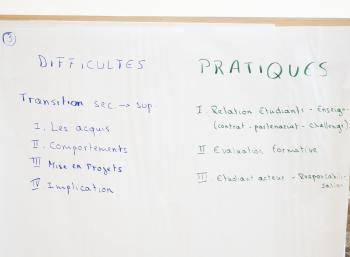 5
DIFFICULTES
Transition sec → sup.
I. Les acquis
II. Comportements
III Mise en Projets
IV Implication
PRATIQUES
I. Relation Etudiants - Enseign
(contrat - partenariat - challenge)
II Evaluation formative
III Etudiant acteur - Responsabili-
sation